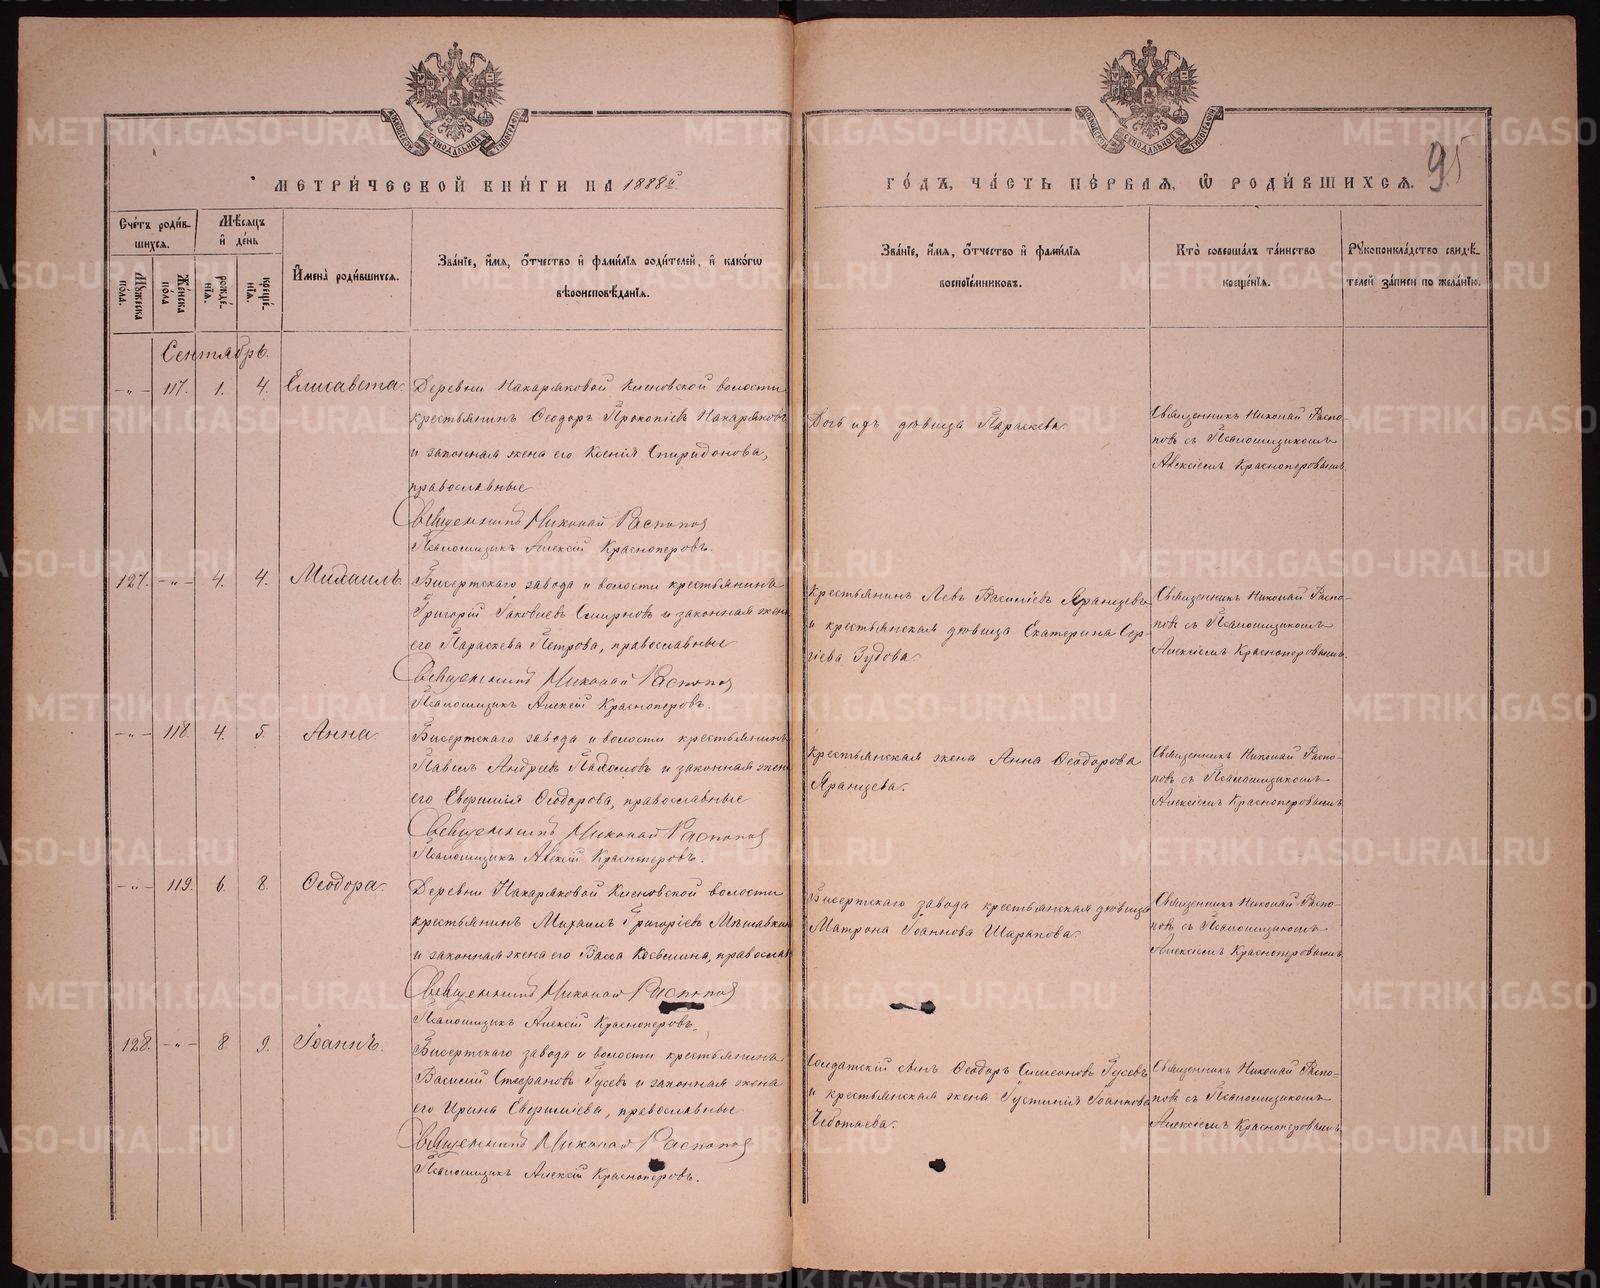 МЕТРИЧЕСКОЙ КНИГИ НА 1888й
ГОДЪ, ЧАСТЬ ПЕРВАЯ, Ѡ РОДИВШИХСЯ.
95
Счетъ родившихся.
Мужеска пола.
Женска пола
Мѣсяцъ и день
рожденія.
крещенія.
Имена родившихся.
Званіе, имя, отчество и фамилія родителей, и какогѡ
вѣроисповѣданія.
Званіе, имя, отчество и фамилія
воспріемниковъ.
Кто совершалъ таинство
крещенія.
Рукоприкладство свидѣтелей записи по желанію.
Сентябрь.
-"- 117. 1. 4. Елисавета.
Деревни Накаряковой Кленовской волости
крестьянинъ Ѳеодоръ Прокопіевъ Накаряковъ
и законная жена его Ксенія Спиридонова,
православные
Священникъ Николай Распоповъ
Псаломщикъ Алексій Красноперовъ.
дѣвица Параскева.
Священникъ Николай Распо-
повъ съ Псаломщикомъ
Алексіемъ Красноперовымъ.
127. -"- 4. 4. Михаилъ.
Бисертскаго завода и волости крестьянинъ
Григорій Іаковлевъ Смирновъ и законная жена
его Параскева Петрова, православные
Священникъ Николай Распоповъ
Псаломщикъ Алексій Красноперовъ.
Крестьянинъ Левъ Василіевъ Яранцевъ
и крестьянская дѣвица Екатерина Сер-
гіева Зудова.
Священникъ Николай Распо-
повъ съ Псаломщикомъ
Алексіемъ Красноперовымъ.
-"- 118. 4. 5. Анна.
Бисертскаго завода и волости крестьянинъ
Павелъ Андреевъ и законная жена
его Евфимія Ѳеодорова, православные
Священникъ Николай Распоповъ
Псаломщикъ Алексій Красноперовъ.
Крестьянская жена Анна Ѳеодорова
Яранцева.
Священникъ Николай Распо-
повъ съ Псаломщикомъ
Алексіемъ Красноперовымъ
-"- 119. 6. 8. Ѳеодора.
Деревни Накаряковой Кленовской волости
крестьянинъ Михаилъ Григоріевъ
и законная жена его Васса Косьмина, православ
Священникъ Николай Распоповъ
Псаломщикъ Алексій Красноперовъ.
Бисертскаго завода крестьянская дѣвица
Матрона Іоаннова Шарапова.
Священникъ Николай Распо-
повъ съ Псаломщикомъ
Алексіемъ Красноперовымъ
128. -"- 8. 9. Іоаннъ.
Бисертскаго завода и волости крестьянинъ
Василій Стефановъ Гусевъ и законная жена
его Ирина Евфиміева, православные
Священникъ Николай Распоповъ
Псаломщикъ Алексій Красноперовъ.
Солдатскій сынъ Ѳеодоръ Симеоновъ Гусевъ
и крестьянская жена Іустинія Іоаннова
Чеботаева.
Священникъ Николай Распо-
повъ съ Псаломщикомъ
Алексіемъ Красноперовымъ
METRIKI.GASO-URAL.RU